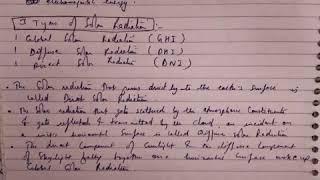 electromagnetic energy.
3 Types of Solar Radiation :-
1 Global Solar Radiation (GHI)
2 Diffuse Solar Radiation (DHI)
3 Direct Solar Radiation (DNI)
• The Solar radiation that comes directly onto the earth's surface is
called Direct Solar Radiation
• The Solar radiation that gets scattered by the atmosphere constituents
& gets reflected & transmitted by the cloud, an incident on
a unit horizontal surface is called Diffuse Solar Radiation
• The direct component of Sunlight & the diffuse component
of Skylight falling together on a horizontal surface make up
Global Solar Radiation